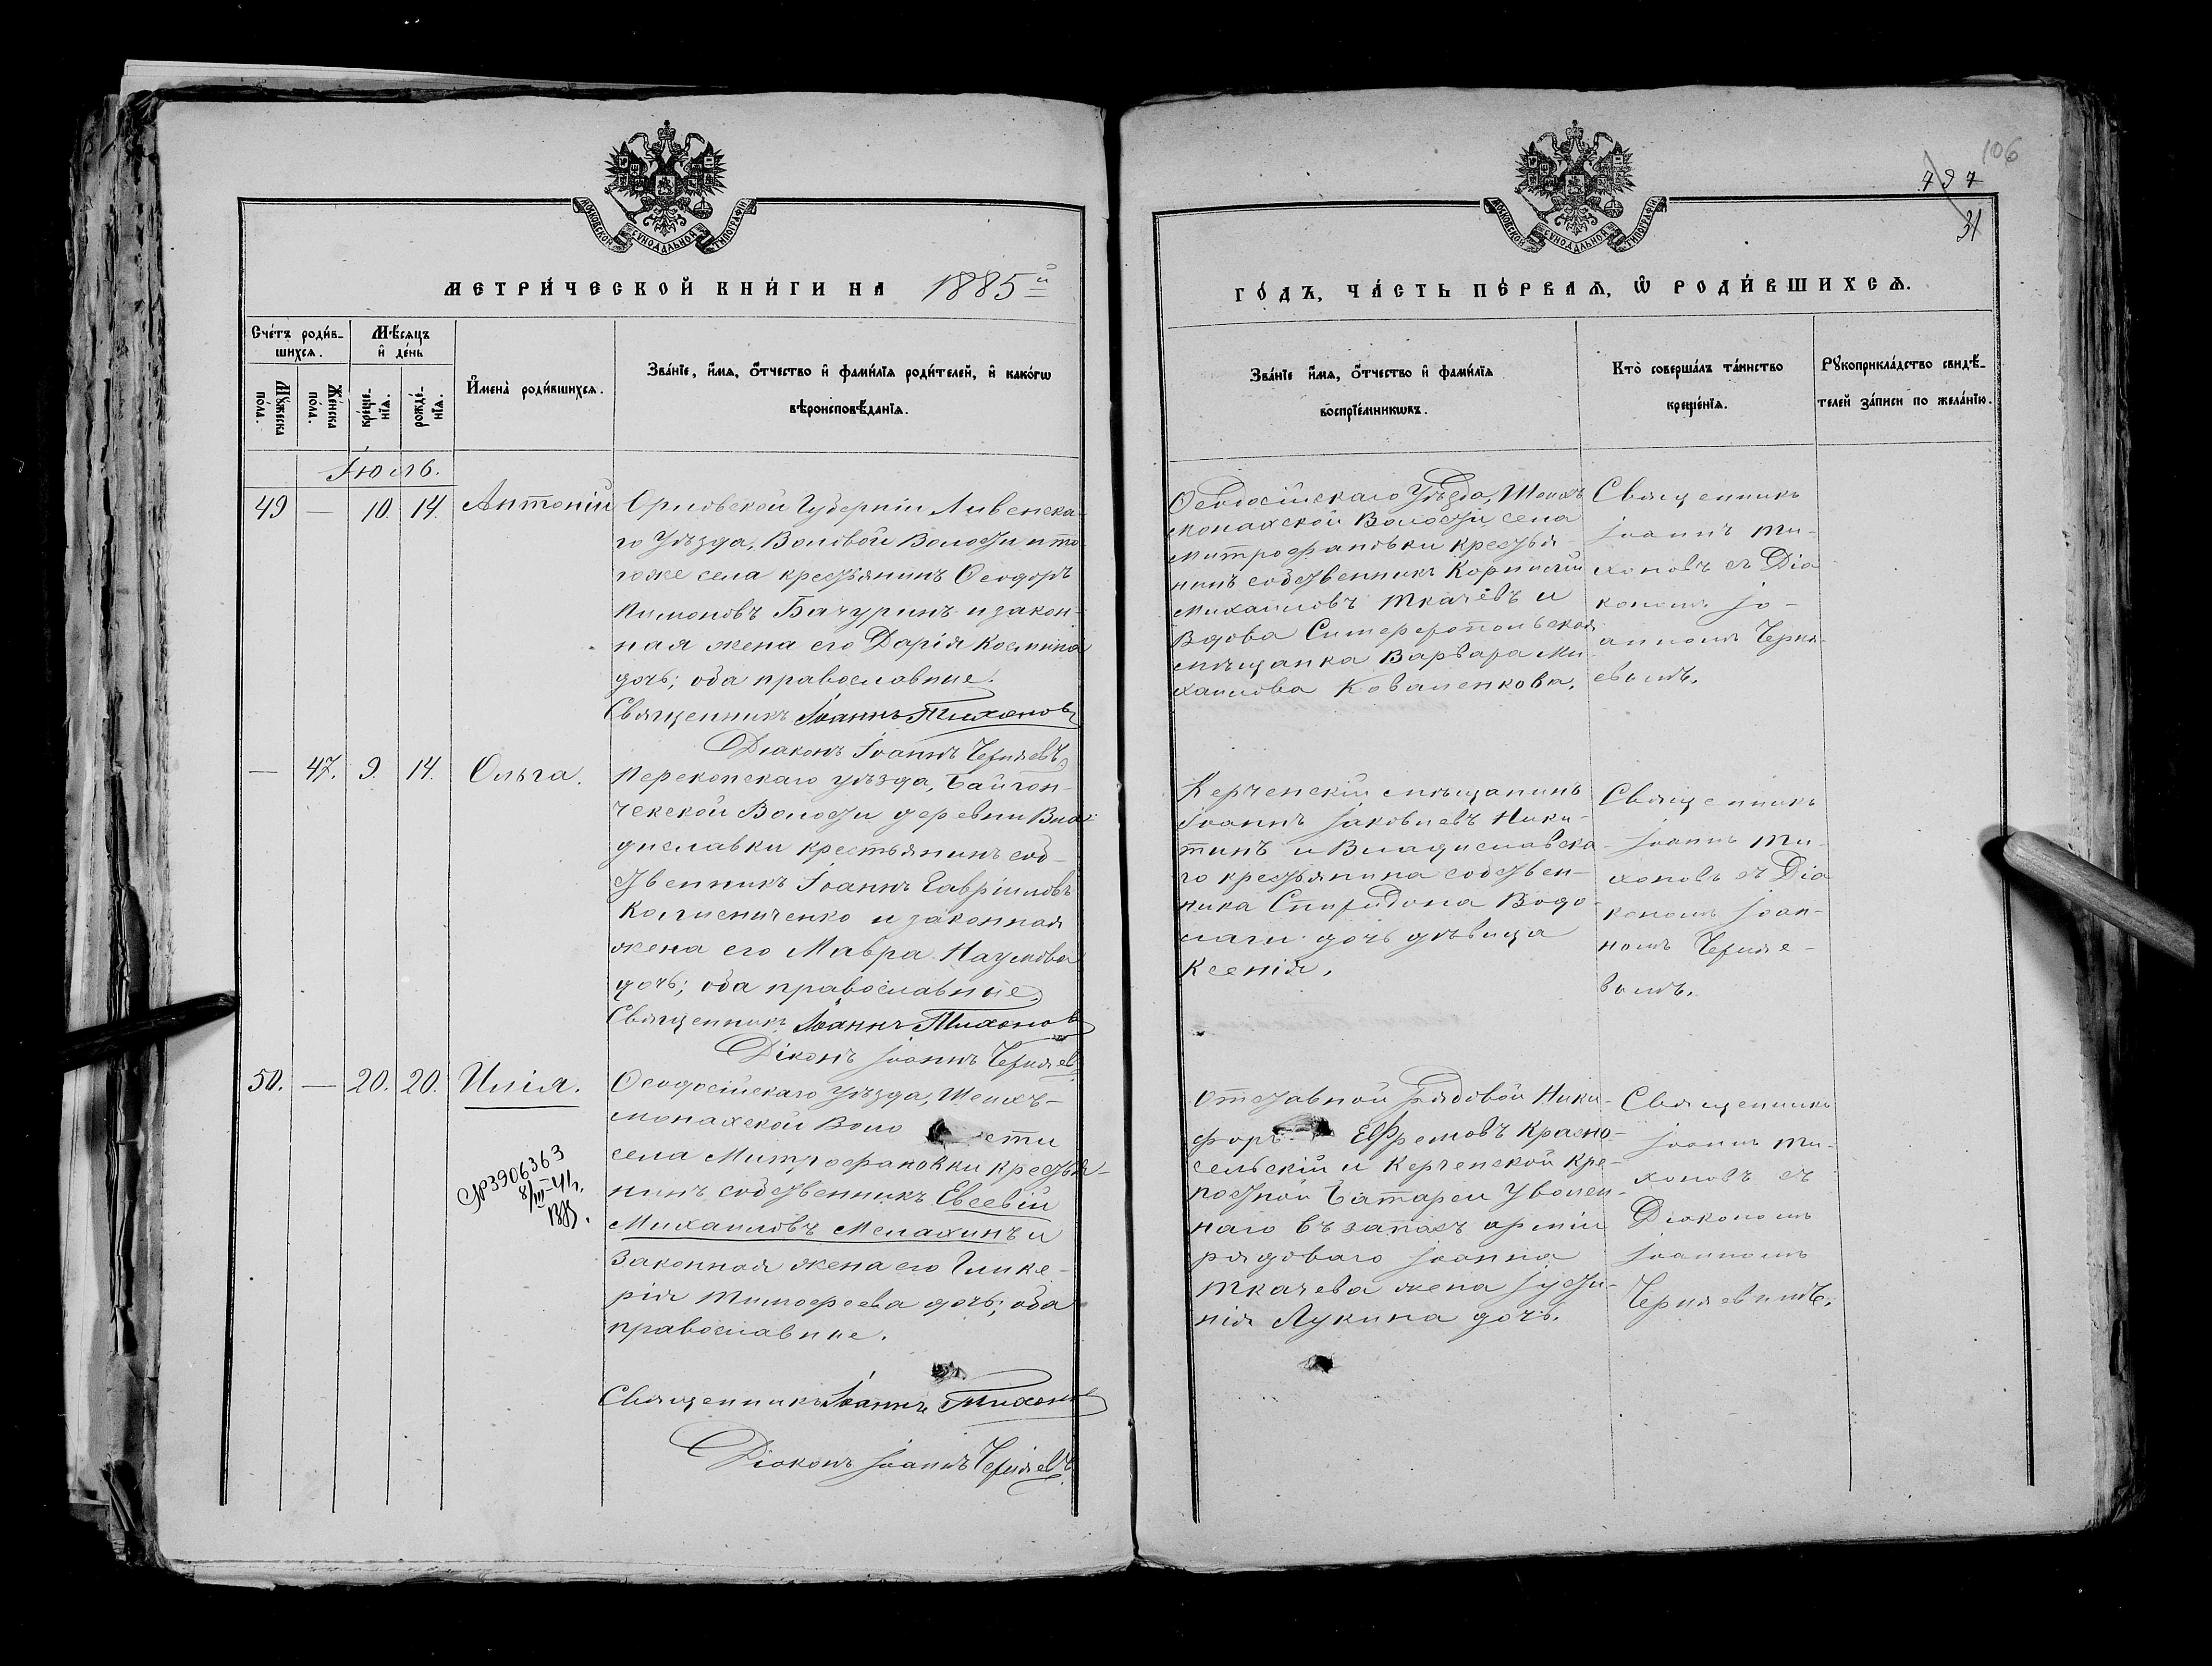 МОСКОВСКОЙ СѴНОДАЛЬНОЙ ТИПОГРАФІИ
МЕТРИ́ЧЕСКОЙ КНИ́ГИ НА 1885й
Сче́тъ роди́в-
шихсѧ.
Мѣ́сѧцъ
и҆ де́нь
Мꙋ́жеска
по́ла.
Же́нска
по́ла.
креще́-
нїѧ.
рожде́-
нїѧ.
И҆мена̀ роди́вшихсѧ.
Зва́нїе, и҆́мѧ, ѻ҆́тчество и҆ фами́лїѧ роди́телей, и҆ како́гѡ
вѣроисповѣ́данїѧ.
Іюль.
49 — 10. 14. Антоній
Орловской Губерніи Ливенска-
го Уѣзда, Воловой Волости и то-
гоже села крестьянинъ Ѳеодоръ
Пимоновъ Бачуринъ и закон-
ная жена его Дарія Космина
дочь; оба православные.
Священникъ Іоаннъ Тихоновъ
Діаконъ Іоаннъ Черняевъ
— 47. 9. 14. Ольга.
Перекопскаго уѣзда, Байгон-
чекской Волости деревни Вла-
диславки крестьянинъ соб-
ственникъ Іоаннъ Гавріиловъ
и законная
жена его Мавра Наумова
дочь; оба православные.
Священникъ Іоаннъ Тихонов
Діконъ Іоаннъ Черняев
50. — 20. 20. Илія.
Ѳеодосійскаго Уѣзда, Шеихъ-
монахской Воло сти
села Митрофановки крестья-
нинъ собственникъ Евсевій
Михаиловъ Мелахинъ и
Законная жена его Глике-
рія Тимофеева дочь; оба
православные.
3906363
8/III-41г.
Священникъ Іоаннъ Тихонов
Діаконъ Іоаннъ Черняевъ
106
797
31
МОСКОВСКОЙ СѴНОДАЛЬНОЙ ТИПОГРАФІИ
ГО́ДЪ, ЧА́СТЬ ПЕ́РВАѦ, Ѡ҆ РОДИ́ВШИХСѦ.
Зва́нїе и҆́мѧ, ѻ҆́тчество и҆ фами́лїѧ
воспрїе́мникѡвъ.
Кто̀ соверша́лъ та́инство
креще́нїѧ.
Рꙋкоприкла́дство свидѣ́-
телей за́писи по жела́нїю.
Ѳеодосійскаго Уѣзда, Шеихъ
монахской Волости села
Митрофановки крестья-
нинъ собственникъ Корнилій
Михаиловъ Ткачёвъ и
Вдова Симферопольская
мѣщанка Варвара Ми
хаилова Коваленкова.
Священникъ
Іоаннъ Ти-
хоновъ съ Діа
кономъ Іо-
анномъ Черня-
евымъ.
Керченскій мѣщанинъ
Іоаннъ Іаковлевъ Ники-
тинъ и Владиславска-
го крестьянина собствен-
ника Спиридона Водо-
лаги дочь дѣвица
Ксенія.
Священникъ
Іоаннъ Ти-
хоновъ съ Діа
кономъ Іоан-
номъ Черняе-
вымъ.
Отставной Рядовой Ники-
форъ Ефремовъ Красно-
сельскій и Керченской Кре-
постной Батареи Уволен-
наго въ запасъ арміи
рядоваго Іоанна
Ткачева жена Іусти-
нія Лукина дочь.
Священникъ
Іоаннъ Ти-
хоновъ съ
Діакономъ
Іоанномъ
Черняевымъ.